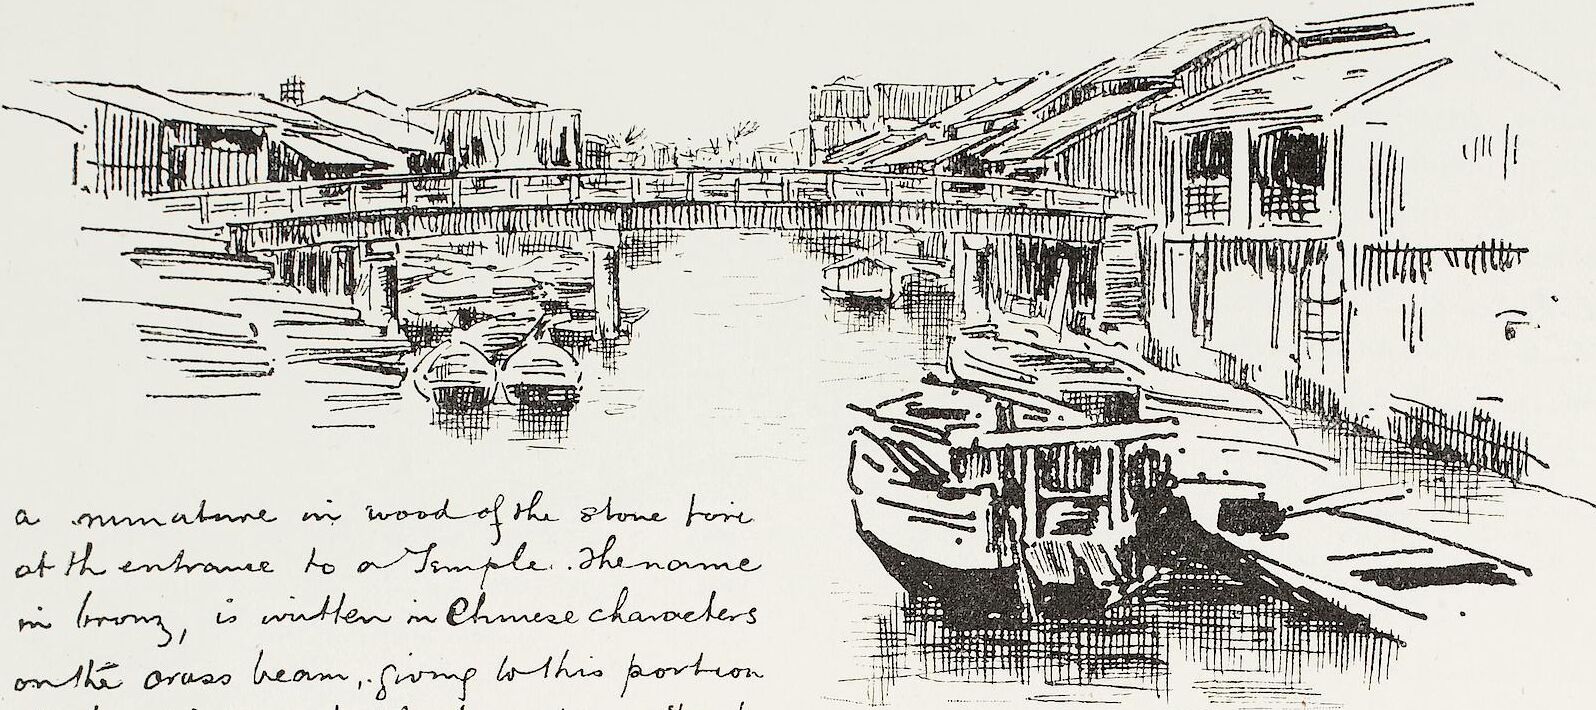 a miniature in wood of the stone torii
at th entrance to a Temple. The name
in bronz, is written in Chinese characters
on the cross beam, giving to this portion